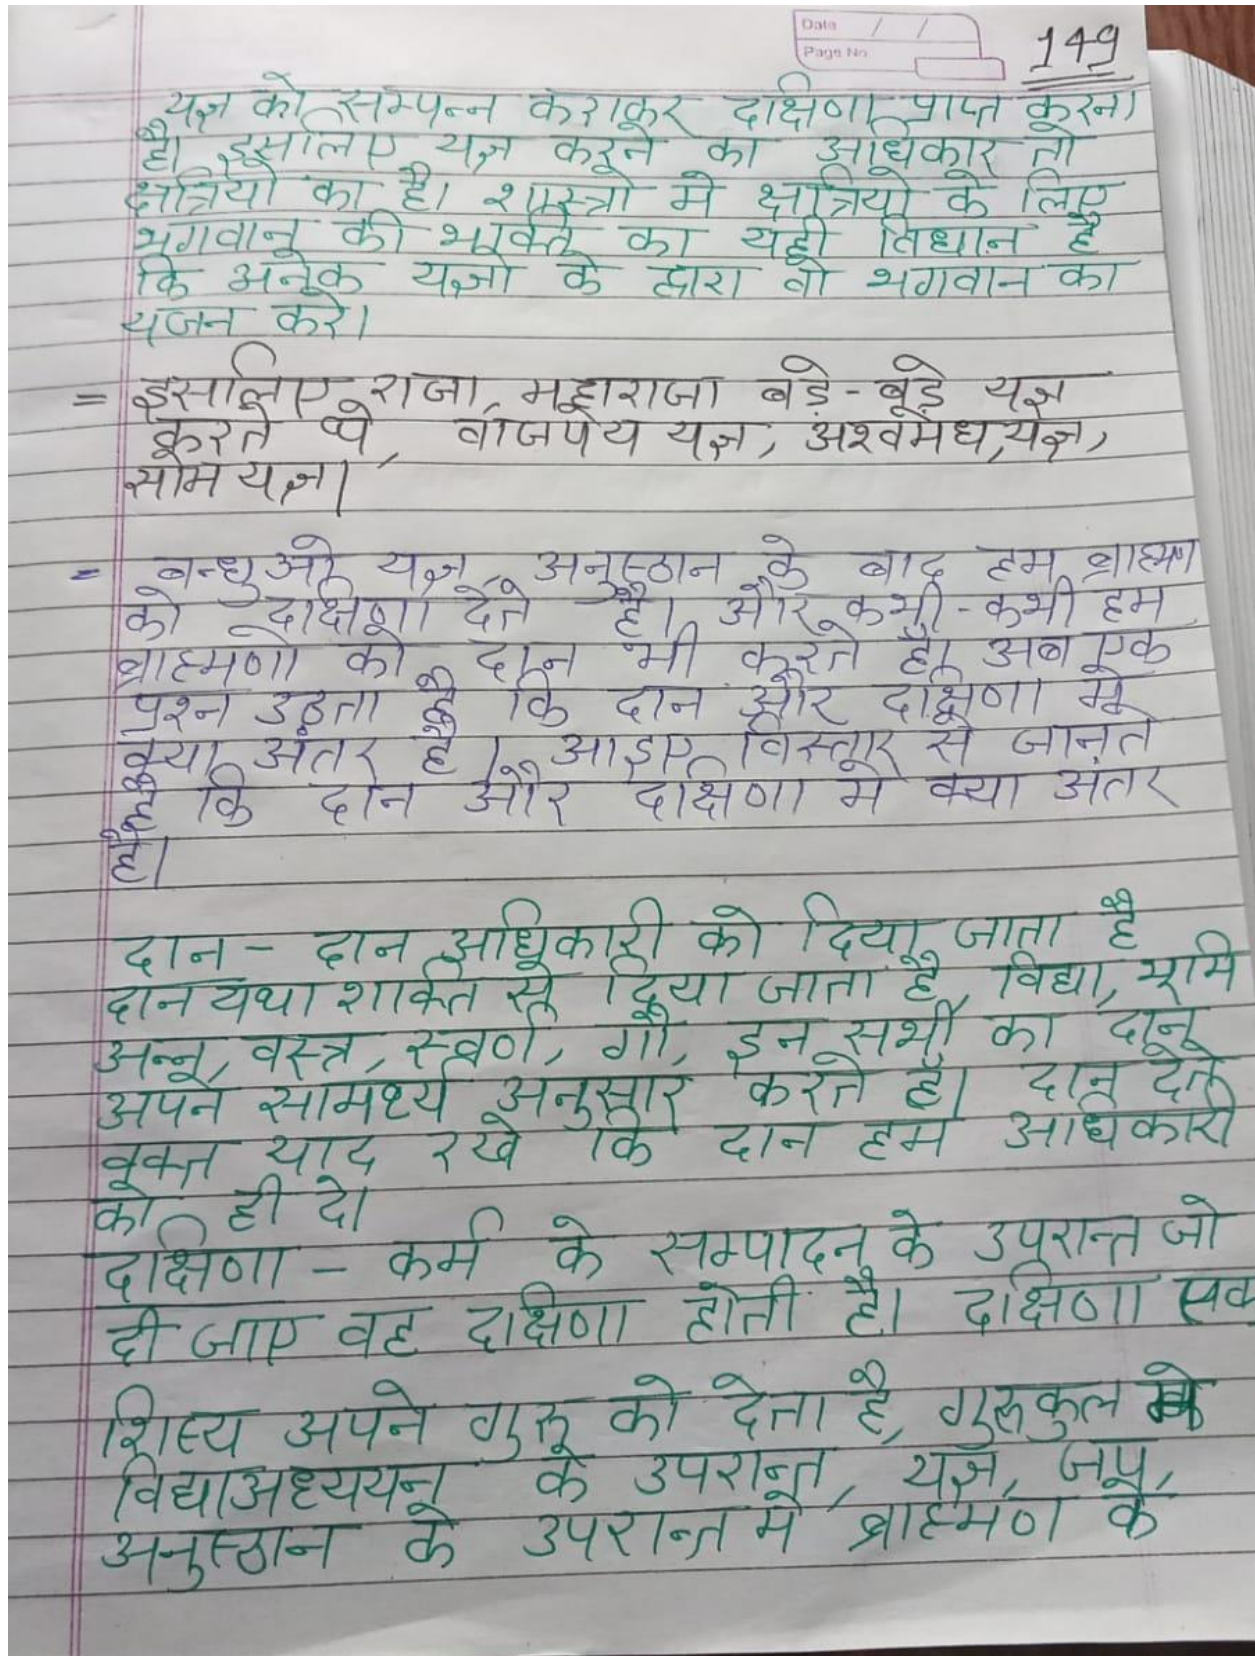 Date / /
Page No
149
यज्ञ को सम्पन्न कराकर दक्षिणा प्राप्त करना
है। इसलिए यज्ञ करने का अधिकार तो
क्षत्रियो का है। शास्त्रो मे क्षत्रियो के लिए
भगवान की भक्ति का यही विधान है
कि अनेक यज्ञो के द्वारा वो भगवान का
यजन करे।
= इसलिए राजा, महाराजा बड़े-बड़े यज्ञ
करते थे, वाजपेय यज्ञ, अश्वमेध,यज्ञ,
सोम यज्ञ।
= बन्धुओ यज्ञ, अनुष्ठान के बाद हम ब्राह्मण
को दक्षिणा देते है। और कभी-कभी हम
ब्राहमणो को दान भी करते है। अब एक
प्रश्न उठता है कि दान और दक्षिणा मे
क्या अंतर है। आइए विस्तार से जानते
है कि दान और दक्षिणा मे क्या अंतर
है।
दान - दान अधिकारी को दिया जाता है
दान यथा शक्ति से दिया जाता है, विद्या, भूमि
अन्न, वस्त्र, स्वर्ण, गौ, इन सभी का दान
अपने सामर्थ्य अनुसार करते है। दान देते
वक्त याद रखे कि दान हम अधिकारी
को ही दे।
दक्षिणा - कर्म के सम्पादन के उपरान्त जो
दी जाए वह दक्षिणा होती है। दक्षिणा एक
शिष्य अपने गुरु को देता है, गुरुकुल मे
विद्याअध्ययन के उपरान्त, यज्ञ, जप,
अनुष्ठान के उपरान्त मे ब्राहमण के